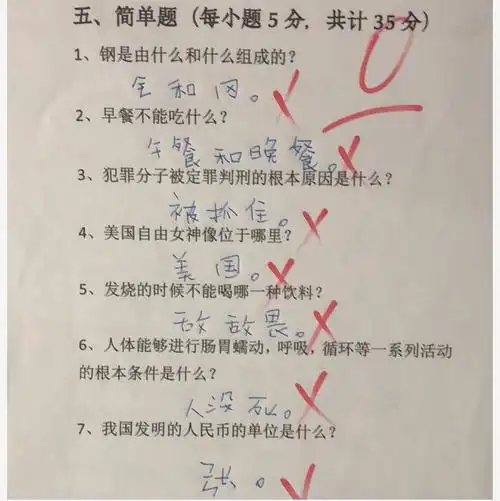 五、简单题（每小题 5 分，共计 35 分）
0
1、钢是由什么和什么组成的？
金和冈。
2、早餐不能吃什么？
午餐和晚餐。
3、犯罪分子被定罪判刑的根本原因是什么？
被抓住。
4、美国自由女神像位于哪里？
美国。
5、发烧的时候不能喝哪一种饮料？
敌敌畏。
6、人体能够进行肠胃蠕动，呼吸，循环等一系列活动
的根本条件是什么？
人没死。
7、我国发明的人民币的单位是什么？
张。